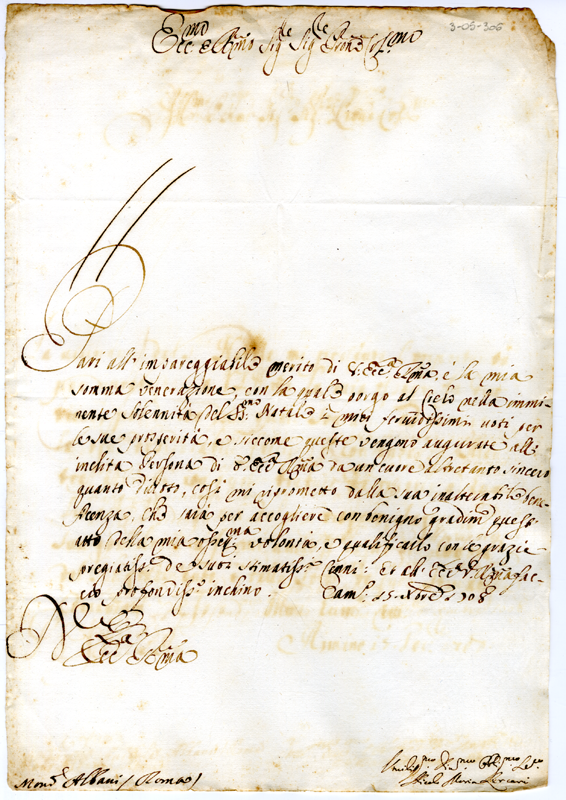 3-05-305
Ecc.mo e R.mo Sig.re Sig.re Pron Col.mo
Pari all'impareggiabile merito di V. Ecc.za R.ma è la mia
somma venerazione, con la quale porgo al Cielo nella immi-
nente solennità del S.mo Natale i miei fervidissimi voti per
le sue prosperità, e siccome queste vengono augurate all'
inclita Persona di V. Ecc.za R.ma da un cuore altretanto sincero
quanto divoto, così mi riprometto dalla sua inalterabile bene-
ficenza, che sarà per accogliere con benigno gradim.to quest'
atto della mia osseq.ma volontà, e qualificarlo con le grazie
pregiatiss.e de suoi stimatiss.i Cenni. Et all' Ecc.a V. R.ma fac-
cio profondiss.o inchino. 708
Ecc.a R.ma
Mons.r Albani / Roma /
Nicolò Maria Lercari